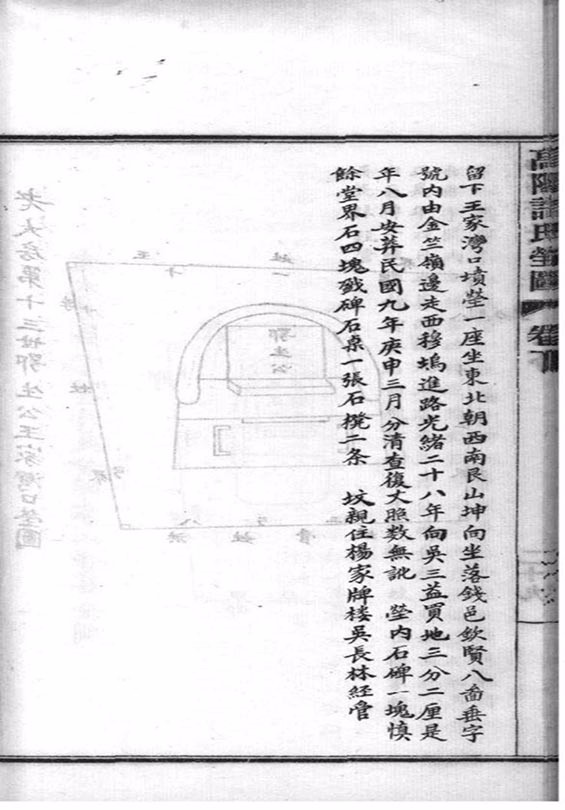 高陽許氏塋圖 卷下
留下王家灣口墳塋一座坐東北朝西南艮山坤向坐落錢邑欽賢八啚垂字
號内由金竺嶺邊走西穆塢進路光緒二十八年向吳三益買地三分二厘是
年八月安葬民國九年庚申三月分清查復丈照數無訛 塋内石碑一塊慎
餘堂界石四塊戤碑石桌一張石櫈二条 坟親住楊家牌楼吳長林經管
鄂生公
大房第十三世鄂生公王家灣口塋圖